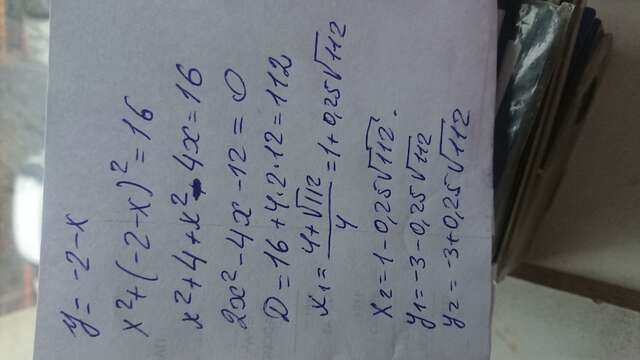 y = -2-x
x²+(-2-x)² = 16
x²+4+x²-4x=16
2x²-4x-12=0
D=16+4·2·12=112
x₁= (4+√112)/4 =1+0,25√112
x₂=1-0,25√112.
y₁=-3-0,25√112
y₂=-3+0,25√112